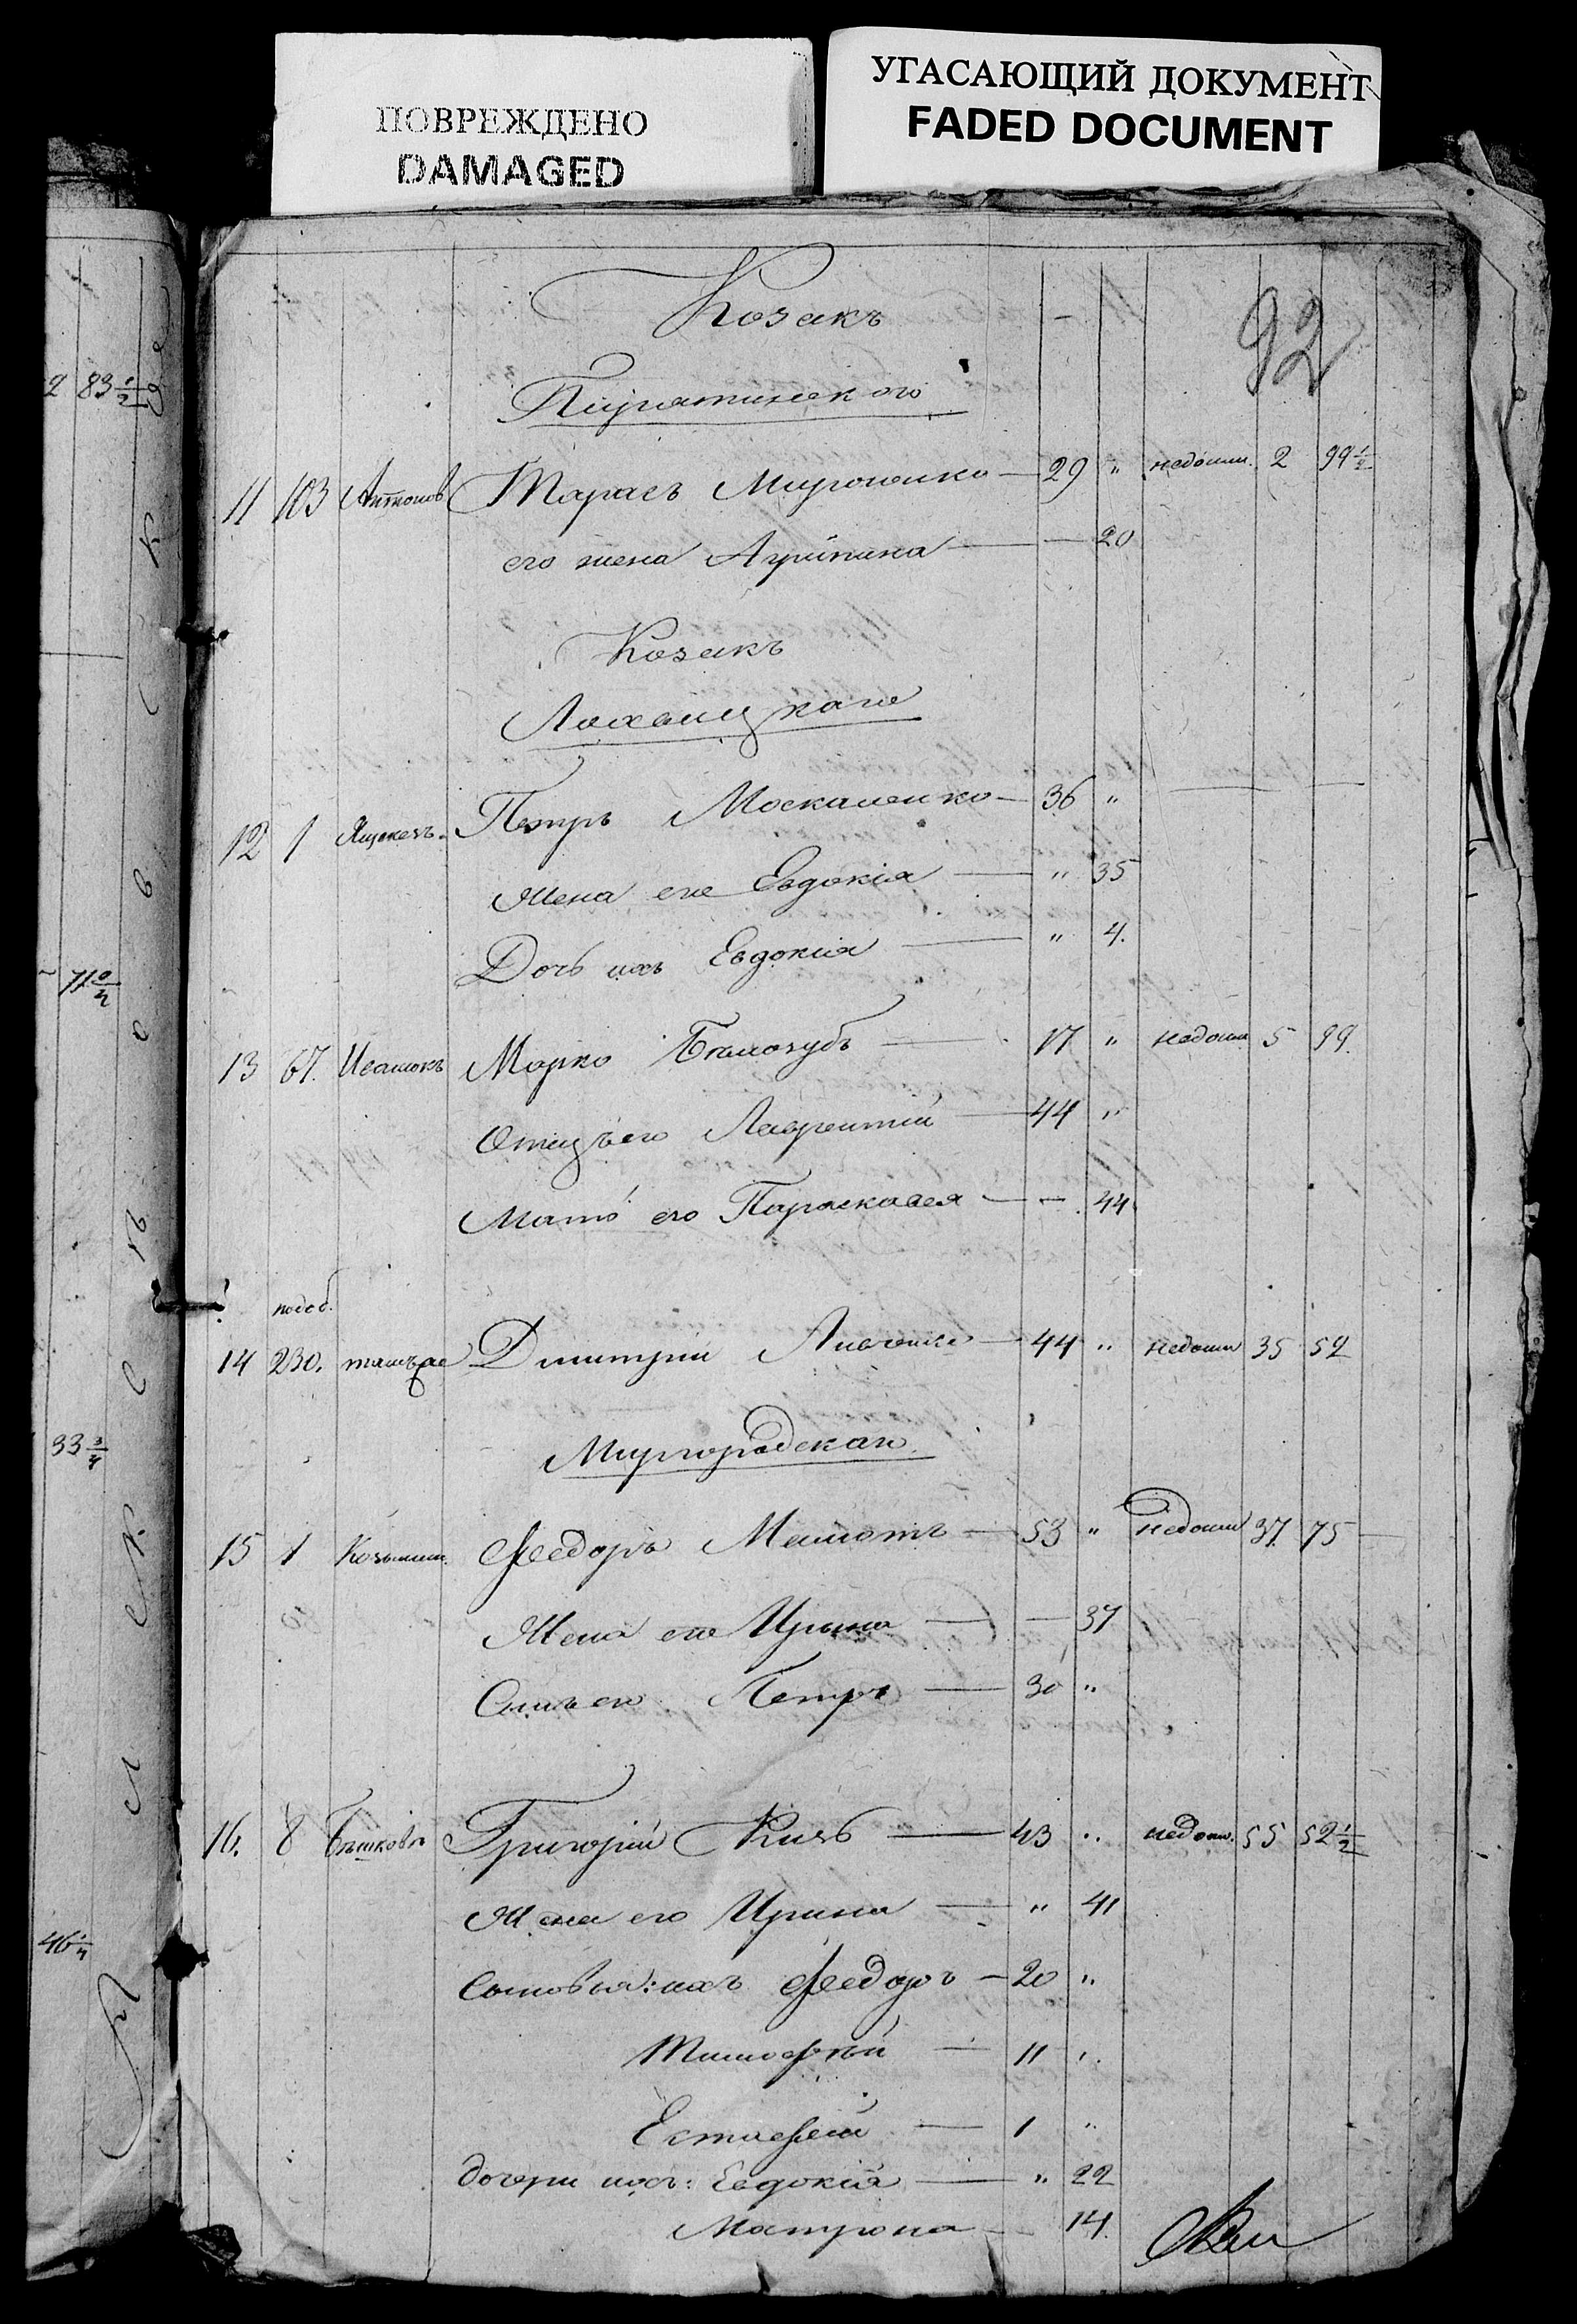 ПОВРЕЖДЕНО
DAMAGED
УГАСАЮЩИЙ ДОКУМЕНТ
FADED DOCUMENT
92
Козакъ —
Пирятинского
11 103 Антонов Тарасъ Мироненко — 29 " недоим. 2 99 1/2
его жена Агрипина — — 20
Козакъ
Лохвицкаго
12 1 Петръ Москаленко — 36 "
Жена его Евдокія — " 35
Дочь ихъ Евдокія — " 4.
13 67. Марко Бѣлозубъ — 17 " недоим 5 99.
Отецъ его Лаврентій — 44 "
Мать его Параскавея — — 44
14 230. Дмитрій — 44 " недоим 35 52
Миргородскаго
15 1 Федоръ — 53 " недоим 37. 75 —
Жена его Ирына — — 37
Сынъ его Петръ — 30 "
16. 8 Григорій — 43 " недоим. 55 52 1/2
Жена его Ирина — " 41
Сыновья: ихъ Федоръ — 20 "
Тимофѣй — 11 "
Естафей — 1 "
дочери ихъ: Евдокія — " 22
Матрона — 14.
2 83 1/2
71
33 3/4
46 1/4